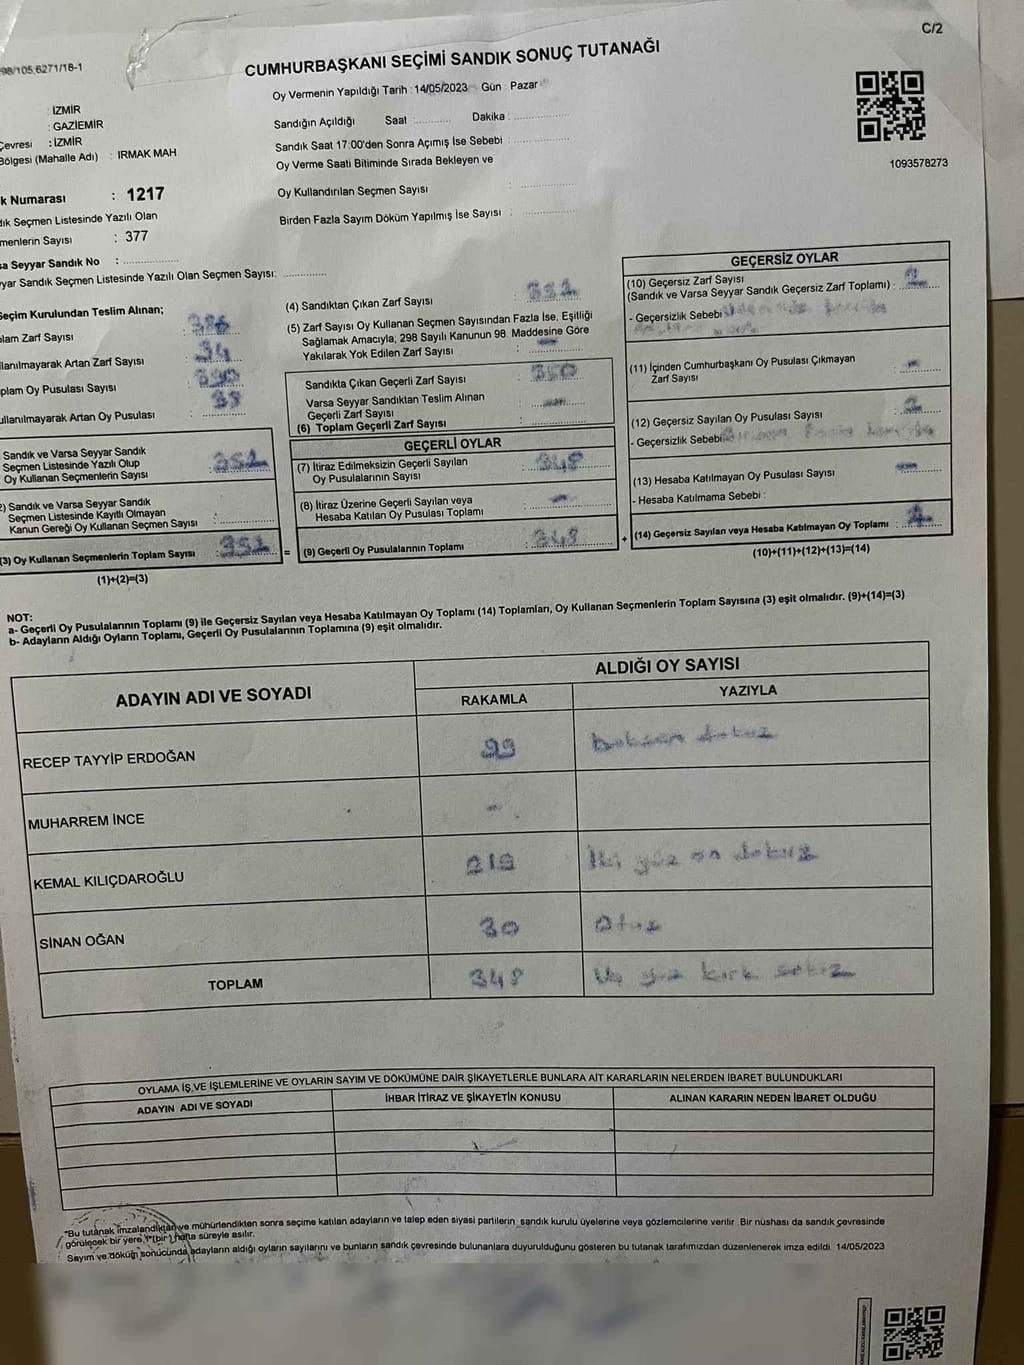 C/2
CUMHURBAŞKANI SEÇİMİ SANDIK SONUÇ TUTANAĞI
98/105.6271/18-1
Oy Vermenin Yapıldığı Tarih : 14/05/2023 Gün : Pazar
: İZMİR
: GAZİEMİR
Çevresi : İZMİR
Bölgesi (Mahalle Adı) : IRMAK MAH
k Numarası : 1217
dık Seçmen Listesinde Yazılı Olan
menlerin Sayısı : 377
sa Seyyar Sandık No :
yyar Sandık Seçmen Listesinde Yazılı Olan Seçmen Sayısı:
Sandığın Açıldığı Saat Dakika :
Sandık Saat 17:00'den Sonra Açımış İse Sebebi :
Oy Verme Saati Bitiminde Sırada Bekleyen ve
Oy Kullandırılan Seçmen Sayısı :
Birden Fazla Sayım Döküm Yapılmış İse Sayısı :
1093578273
Seçim Kurulundan Teslim Alınan;
plam Zarf Sayısı : 386
llanılmayarak Artan Zarf Sayısı : 34
plam Oy Pusulası Sayısı : 390
ullanılmayarak Artan Oy Pusulası : 38
Sandık ve Varsa Seyyar Sandık
Seçmen Listesinde Yazılı Olup
Oy Kullanan Seçmenlerin Sayısı : 352
2) Sandık ve Varsa Seyyar Sandık
Seçmen Listesinde Kayıtlı Olmayan
Kanun Gereği Oy Kullanan Seçmen Sayısı :
(3) Oy Kullanan Seçmenlerin Toplam Sayısı : 352
(1)+(2)=(3)
(4) Sandıktan Çıkan Zarf Sayısı : 352
(5) Zarf Sayısı Oy Kullanan Seçmen Sayısından Fazla İse, Eşitliği
Sağlamak Amacıyla, 298 Sayılı Kanunun 98. Maddesine Göre
Yakılarak Yok Edilen Zarf Sayısı : -
Sandıkta Çıkan Geçerli Zarf Sayısı : 350
Varsa Seyyar Sandıktan Teslim Alınan
Geçerli Zarf Sayısı : -
(6) Toplam Geçerli Zarf Sayısı
GEÇERLİ OYLAR
(7) İtiraz Edilmeksizin Geçerli Sayılan
Oy Pusulalarının Sayısı : 348
(8) İtiraz Üzerine Geçerli Sayılan veya
Hesaba Katılan Oy Pusulası Toplamı : -
= (9) Geçerli Oy Pusulalarının Toplamı : 348
GEÇERSİZ OYLAR
(10) Geçersiz Zarf Sayısı
(Sandık ve Varsa Seyyar Sandık Geçersiz Zarf Toplamı) : 2
- Geçersizlik Sebebi :
(11) İçinden Cumhurbaşkanı Oy Pusulası Çıkmayan
Zarf Sayısı : -
(12) Geçersiz Sayılan Oy Pusulası Sayısı : 2
- Geçersizlik Sebebi:
(13) Hesaba Katılmayan Oy Pusulası Sayısı : -
- Hesaba Katılmama Sebebi :
+ (14) Geçersiz Sayılan veya Hesaba Katılmayan Oy Toplamı :
(10)+(11)+(12)+(13)=(14)
NOT:
a- Geçerli Oy Pusulalarının Toplamı (9) ile Geçersiz Sayılan veya Hesaba Katılmayan Oy Toplamı (14) Toplamları, Oy Kullanan Seçmenlerin Toplam Sayısına (3) eşit olmalıdır. (9)+(14)=(3)
b- Adayların Aldığı Oyların Toplamı, Geçerli Oy Pusulalarının Toplamına (9) eşit olmalıdır.
ADAYIN ADI VE SOYADI ALDIĞI OY SAYISI
RAKAMLA YAZIYLA
RECEP TAYYİP ERDOĞAN 99 Doksan dokuz
MUHARREM İNCE -
KEMAL KILIÇDAROĞLU 219 İki yüz on dokuz
SİNAN OĞAN 30 Otuz
TOPLAM 348 Üç yüz kırk sekiz
OYLAMA İŞ VE İŞLEMLERİNE VE OYLARIN SAYIM VE DÖKÜMÜNE DAİR ŞİKAYETLERLE BUNLARA AİT KARARLARIN NELERDEN İBARET BULUNDUKLARI
ADAYIN ADI VE SOYADI İHBAR İTİRAZ VE ŞİKAYETİN KONUSU ALINAN KARARIN NEDEN İBARET OLDUĞU
"Bu tutanak imzalandıktan ve mühürlendikten sonra seçime katılan adayların ve talep eden siyasi partilerin sandık kurulu üyelerine veya gözlemcilerine verilir. Bir nüshası da sandık çevresinde
görülecek bir yere 1 (bir) hafta süreyle asılır.
Sayım ve döküm sonucunda adayların aldığı oyların sayılarını ve bunların sandık çevresinde bulunanlara duyurulduğunu gösteren bu tutanak tarafımızdan düzenlenerek imza edildi. 14/05/2023